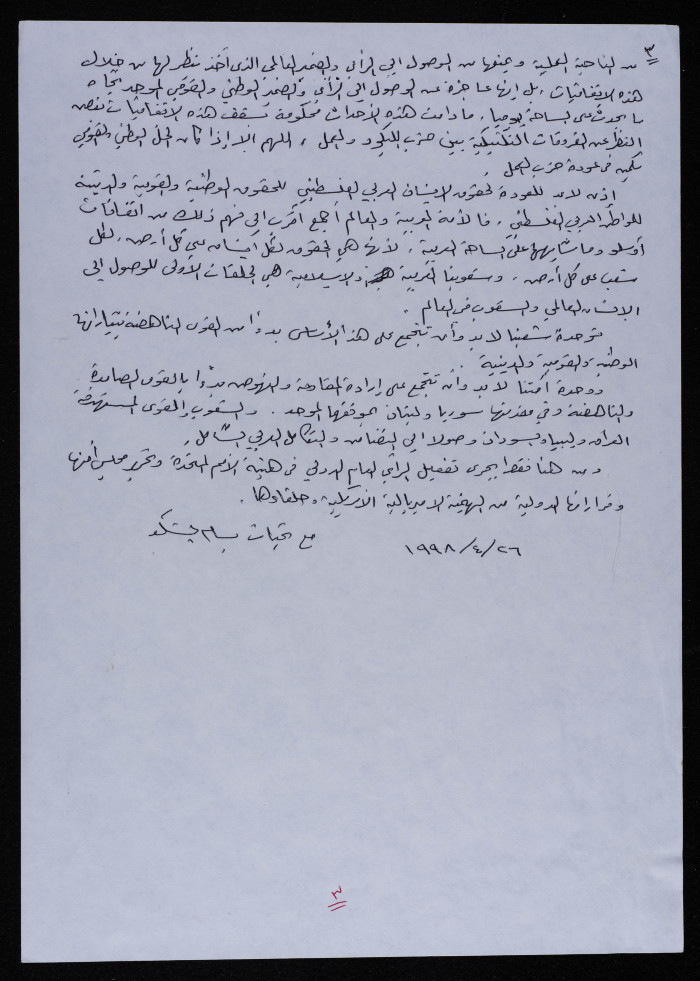 ٣
من الناحية العملية ويمنعها من الوصول الى الرأي والضمير العالمي الذي أخذ ينظر لها من خلال
هذه الاتفاقيات، بل إنها عاجزة عن الوصول الى الرأي والضمير الوطني والقومي الموحد تجاه
ما يحدث على الساحة يوميا، ما دامت هذه الأحداث محكومة بسقف هذه الاتفاقيات بغض
النظر عن الفروقات التكتيكية بين حزب الليكود والعمل، اللهم إلا إذا كان الحل الوطني والقومي
يكمن في عودة حزب العمل.
إذن لا بد للعودة لحقوق الإنسان العربي الفلسطيني للحقوق الوطنية والقومية والدينية
للمواطن العربي الفلسطيني، فالأمة العربية والعالم أجمع أقرب الى فهم ذلك من اتفاقات
أوسلو وما شابهها على الساحة العربية، لأنها هي الحقوق لكل إنسان على كل أرض، لكل
شعب على كل أرض، وشعوبنا العربية والاسلامية هي الحلقات الأولى للوصول الى
الإنسان العالمي والشعوب في العالم.
فوحدة شعبنا لا بد وأن تتجمع على هذا الأساس بدءا من القوى الناهضة بتياراتها
الوطنية والقومية والدينية.
ووحدة أمتنا لا بد وأن تتجمع على إرادة المقاومة والنهوض بدءا بالقوى الصامدة
والناهضة وفي مقدمتها سوريا ولبنان بموقفها الموحد. والشعوب والقوى المستهدفة
العراق وليبيا والسودان وصولا الى التضامن والتكامل العربي الشامل.
ومن هنا فقط يجري تفعيل الرأي العام الدولي في هيئة الأمم المتحدة وتحرير مجلس أمنها
وقراراتها الدولية من الهيمنة الامبريالية الأمريكية وحلفاءها.
مع تحيات بسام الشكعه
٢٦/٤/١٩٩٨
٣